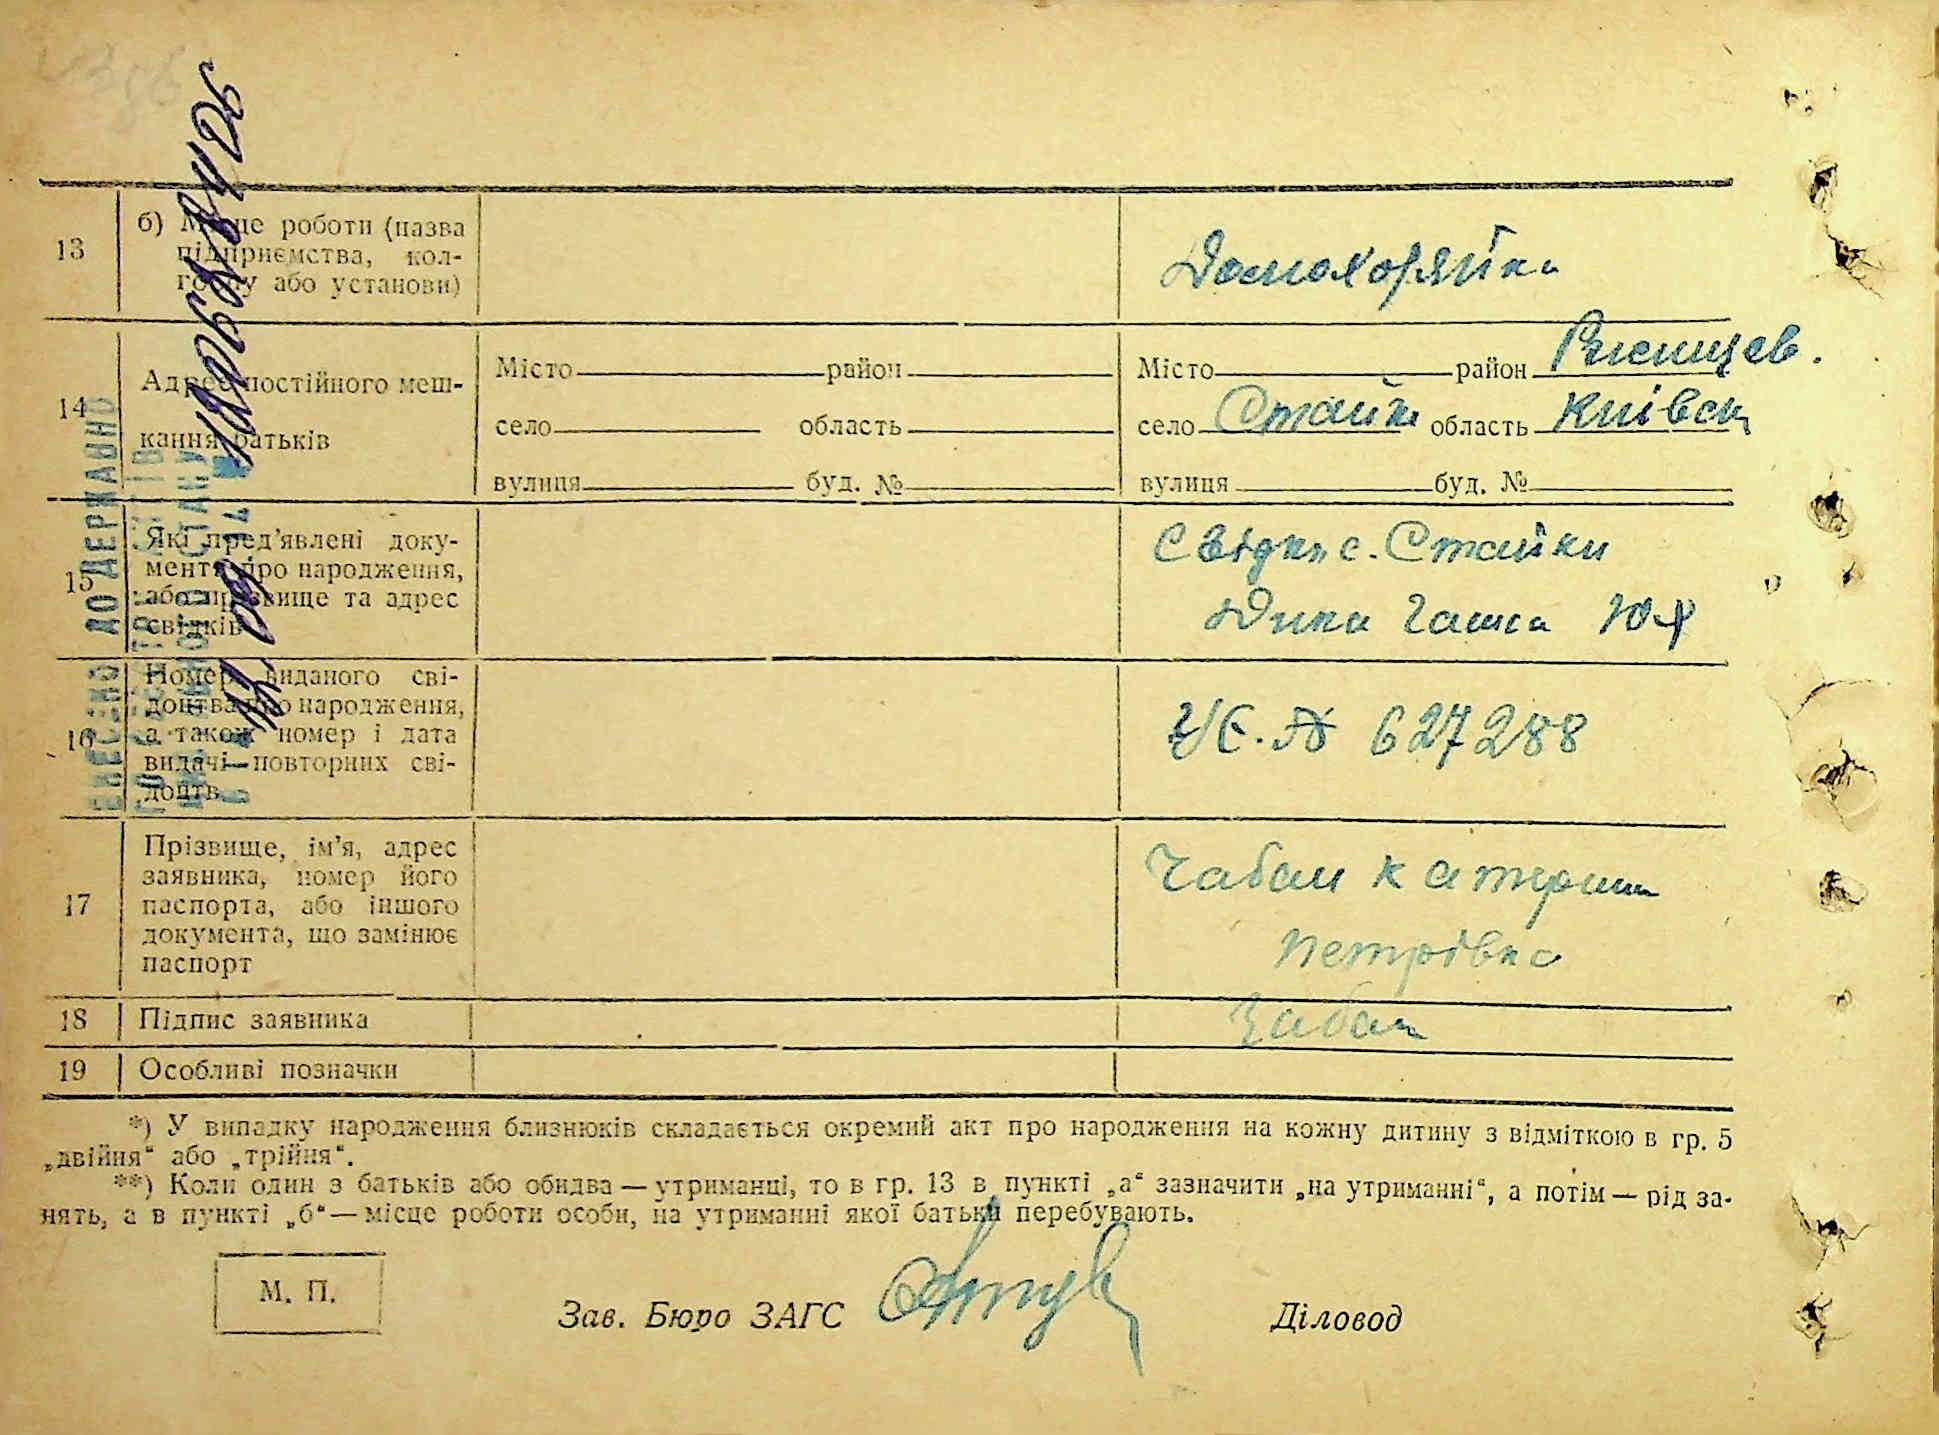 13
б) Місце роботи (назва
підприємства, кол-
госпу або установи)
Домохозяйка
14
Адрес постійного меш-
кання батьків
Місто район
село область
вулиця буд. №
Місто район Ржищев.
село Стайки область Київськ
вулиця буд. №
15
Які пред'явлені доку-
менти про народження,
або прізвище та адрес
свідків
с. Стайки
16
Номер виданого сві-
доцтва про народження,
а також номер і дата
видачі повторних сві-
доцтв
№ 627288
17
Прізвище, ім'я, адрес
заявника, номер його
паспорта, або іншого
документа, що замінює
паспорт
Чабан Катерина
Петрівна
18 Підпис заявника
Чабан
19 Особливі позначки
*) У випадку народження близнюків складається окремий акт про народження на кожну дитину з відміткою в гр. 5
„двійня“ або „трійня“.
**) Коли один з батьків або обидва — утриманці, то в гр. 13 в пункті „а“ зазначити „на утриманні“, а потім — рід за-
нять, а в пункті „б“ — місце роботи особи, на утриманні якої батьки перебувають.
М. П.
Зав. Бюро ЗАГС
Діловод
ВНЕСЕНО ДО ДЕРЖАВНО